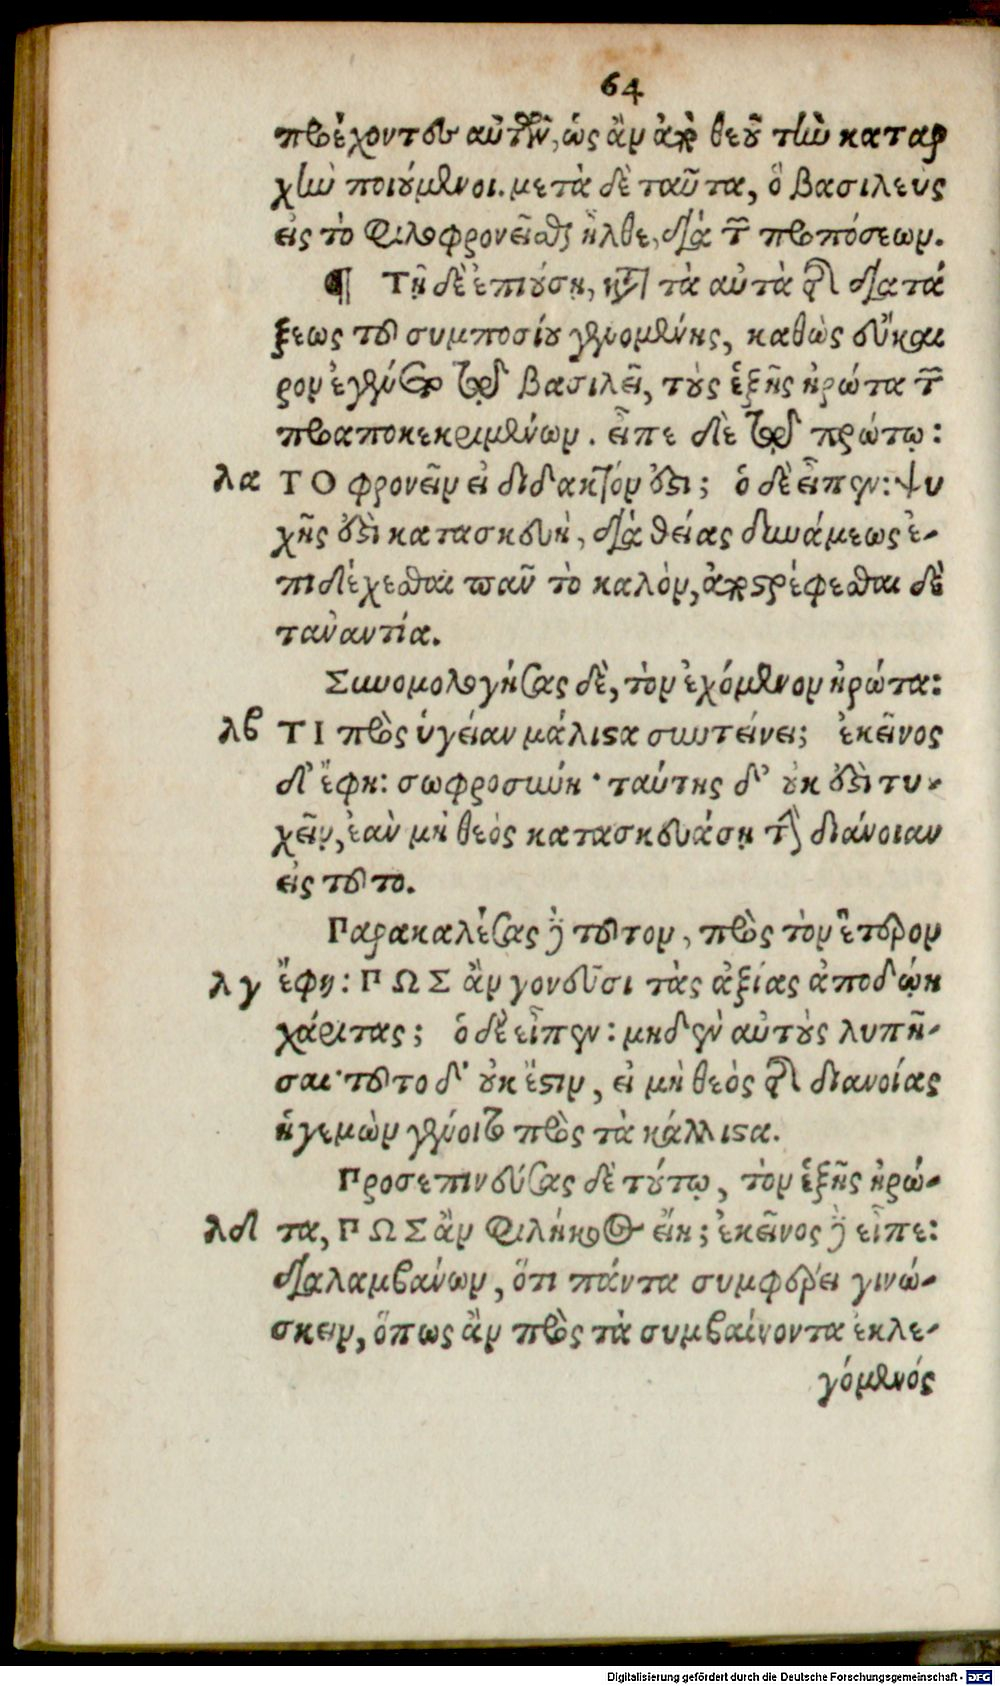 64
προέχοντες αὐτῶν, ὡς ἂν ἀπὸ θεοῦ τὴν καταρ
χὴν ποιούμενοι. μετὰ δὲ ταῦτα, ὁ βασιλεὺς
εἰς τὸ φιλοφρονεῖσθαι ἦλθε, διὰ τῶν προπόσεων.
¶ Τῇ δὲ ἐπιούσῃ, κατὰ τὰ αὐτὰ τῆς διατά
ξεως τοῦ συμποσίου γενομένης, καθὼς εὔκαι
ρον ἐγένετο τῷ βασιλεῖ, τοὺς ἑξῆς ἠρώτα τῶν
προαποκεκριμένων. εἶπε δὲ τῷ πρώτῳ:
λα ΤΟ φρονεῖν εἰ διδακτόν ἐστι; ὁ δὲ εἶπεν: ψυ
χῆς ἐστὶ κατασκευὴ, διὰ θείας δυνάμεως ἐ-
πιδέχεσθαι παν τὸ καλὸν, ἀποστρέφεσθαι δὲ
ταναντία.
Συνομολογήσας δὲ, τὸν ἐχόμενον ἠρώτα:
λβ ΤΙ πρὸς ὑγείαν μάλιστα συντείνει; ἐκεῖνος
δ' ἔφη: σωφροσύνη· ταύτης δ' οὐκ ἐστὶ τυ-
χεῖν, ἐὰν μὴ θεὸς κατασκευάσῃ τὴν διάνοιαν
εἰς τοῦτο.
Παρακαλέσας δὲ τοῦτον, πρὸς τὸν ἕτερον
λγ ἔφη: ΠΩΣ ἂν γονεῦσι τὰς ἀξίας ἀποδῴη
χάριτας; ὁ δὲ εἶπεν: μηδὲν αὐτοὺς λυπῆ-
σαι· τοῦτο δ' οὐκ ἔστιν, εἰ μὴ θεὸς τῆς διανοίας
ἡγεμὼν γένοιτο πρὸς τὰ κάλλιστα.
Προσεπινεύσας δὲ τούτῳ, τὸν ἑξῆς ἠρώ-
λδ τα, ΠΩΣ ἂν φιλήκοος εἴη; ἐκεῖνος δὲ εἶπε:
διαλαμβάνων, ὅτι πάντα συμφέρει γινώ-
σκειν, ὅπως ἂν πρὸς τὰ συμβαίνοντα ἐκλε-
γόμενός
Digitalisierung gefördert durch die Deutsche Forschungsgemeinschaft - DFG